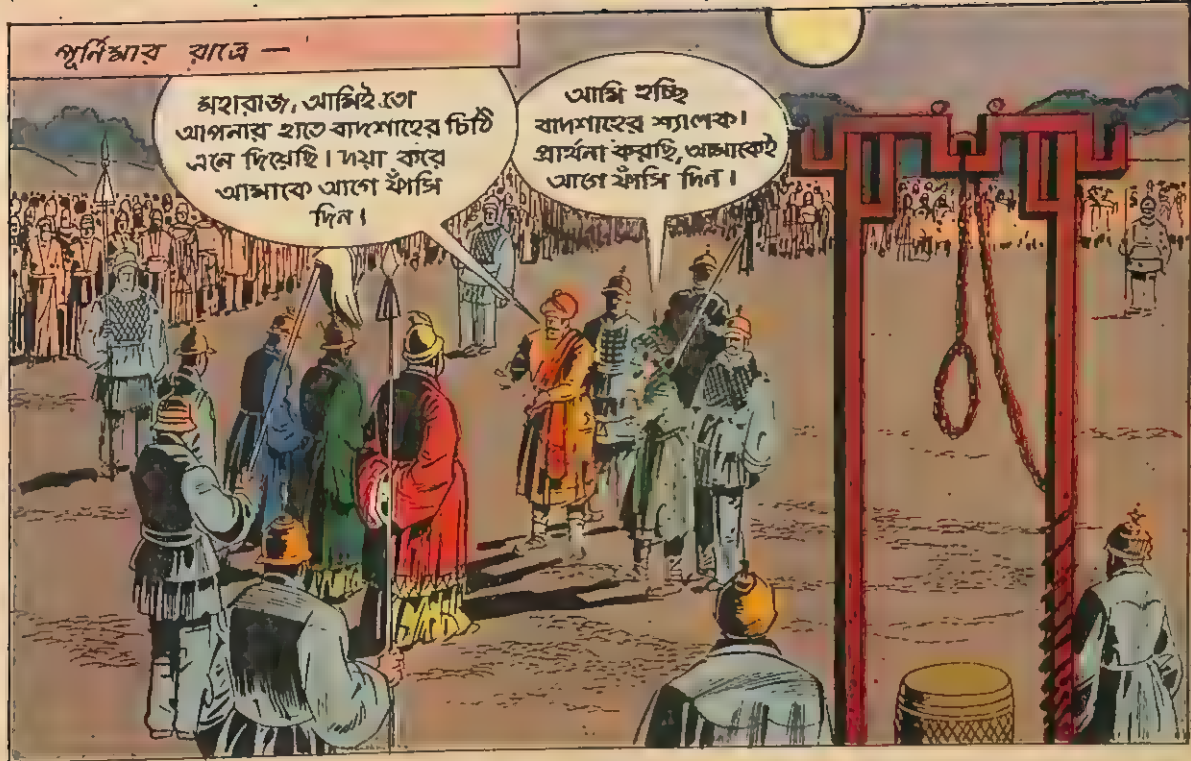 পূর্নিমার রাত্রে —
মহারাজ, আমিই তো
আপনার হাতে বাদশাহের চিঠি
এনে দিয়েছি। দয়া করে
আমাকে আগে ফাঁসি
দিন।
আমি হচ্ছি
বাদশাহের শ্যালক।
প্রার্থনা করছি, আমাকেই
আগে ফাঁসি দিন।